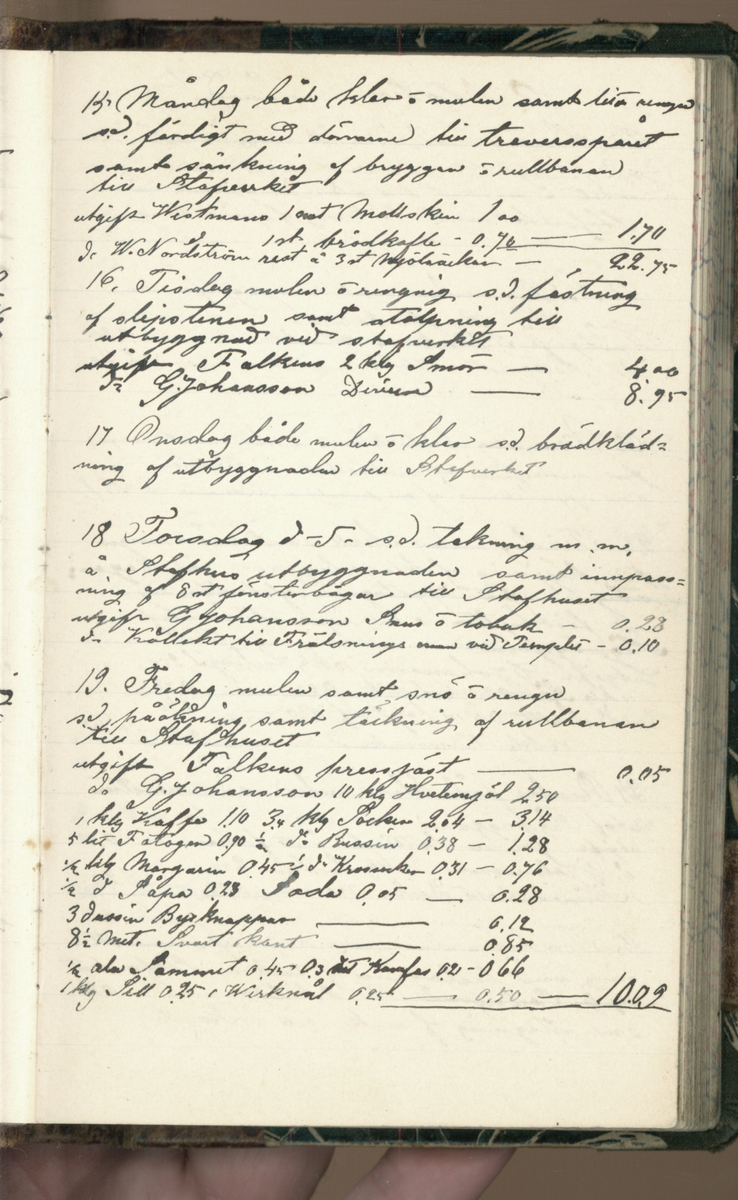 15 Måndag både klar ō mulen samt lite regn
s.d. färdigt med dörrarne till traversspåret
samt sänkning af bryggan ō rullbanan
till Stafverket
utgift Wistmans 1 Mollskin 1 00
1 st. brödkafle - 0.70 — 1.70
do W. Nordström rest å 3 st Mjölsäckar — 22.75
16. Tisdag mulen ō regnig s.d. fästning
af slipstenen samt stolpning till
utbyggnad vid stafverket
utgift Falkens 2 klg Smör — 4 00
do G. Johansson Diverse — 8.95
17 Onsdag både mulen ō klar s.d. brädkläd=
ning af utbyggnaden till Stafverket
18 Torsdag d-o- s.d. täkning m.m.
å Stafhus utbyggnaden samt innpass=
ning af 8 st fönsterbågar till Stafhuset
utgift G Johansson Snus ō tobak - 0.23
do Kollekt till Frälsnings vid Templet - 0.10
19. Fredag mulen samt snö ō regn
s.d. samt täckning af rullbanan
till Stafhuset
utgift Falkens pressjäst — 0.05
do G. Johansson 10 klg Hvetemjöl 2.50
1 klg Kaffe 1.10 3,4 klg Socker 2.04 — 3.14
5 lit Fotogen 0.90 ½ do Russin 0.38 — 1.28
½ klg Margarin 0.45 ½ do Krossocker 0.31 — 0.76
½ d Såpa 0.23 Soda 0.05 — 0.28
3 dussin Byxknappar — 0.12
8½ Met. Svart kant — 0.85
½ aln Sammet 0.45 0.3 Kanfas 0.21 - 0.66
1 klg Sill 0.25 1 Wirknål 0.25 — 0.50 — 10.09